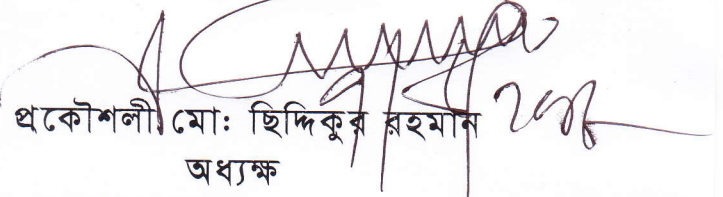 প্রকৌশলী মো: ছিদ্দিকুর রহমান
অধ্যক্ষ